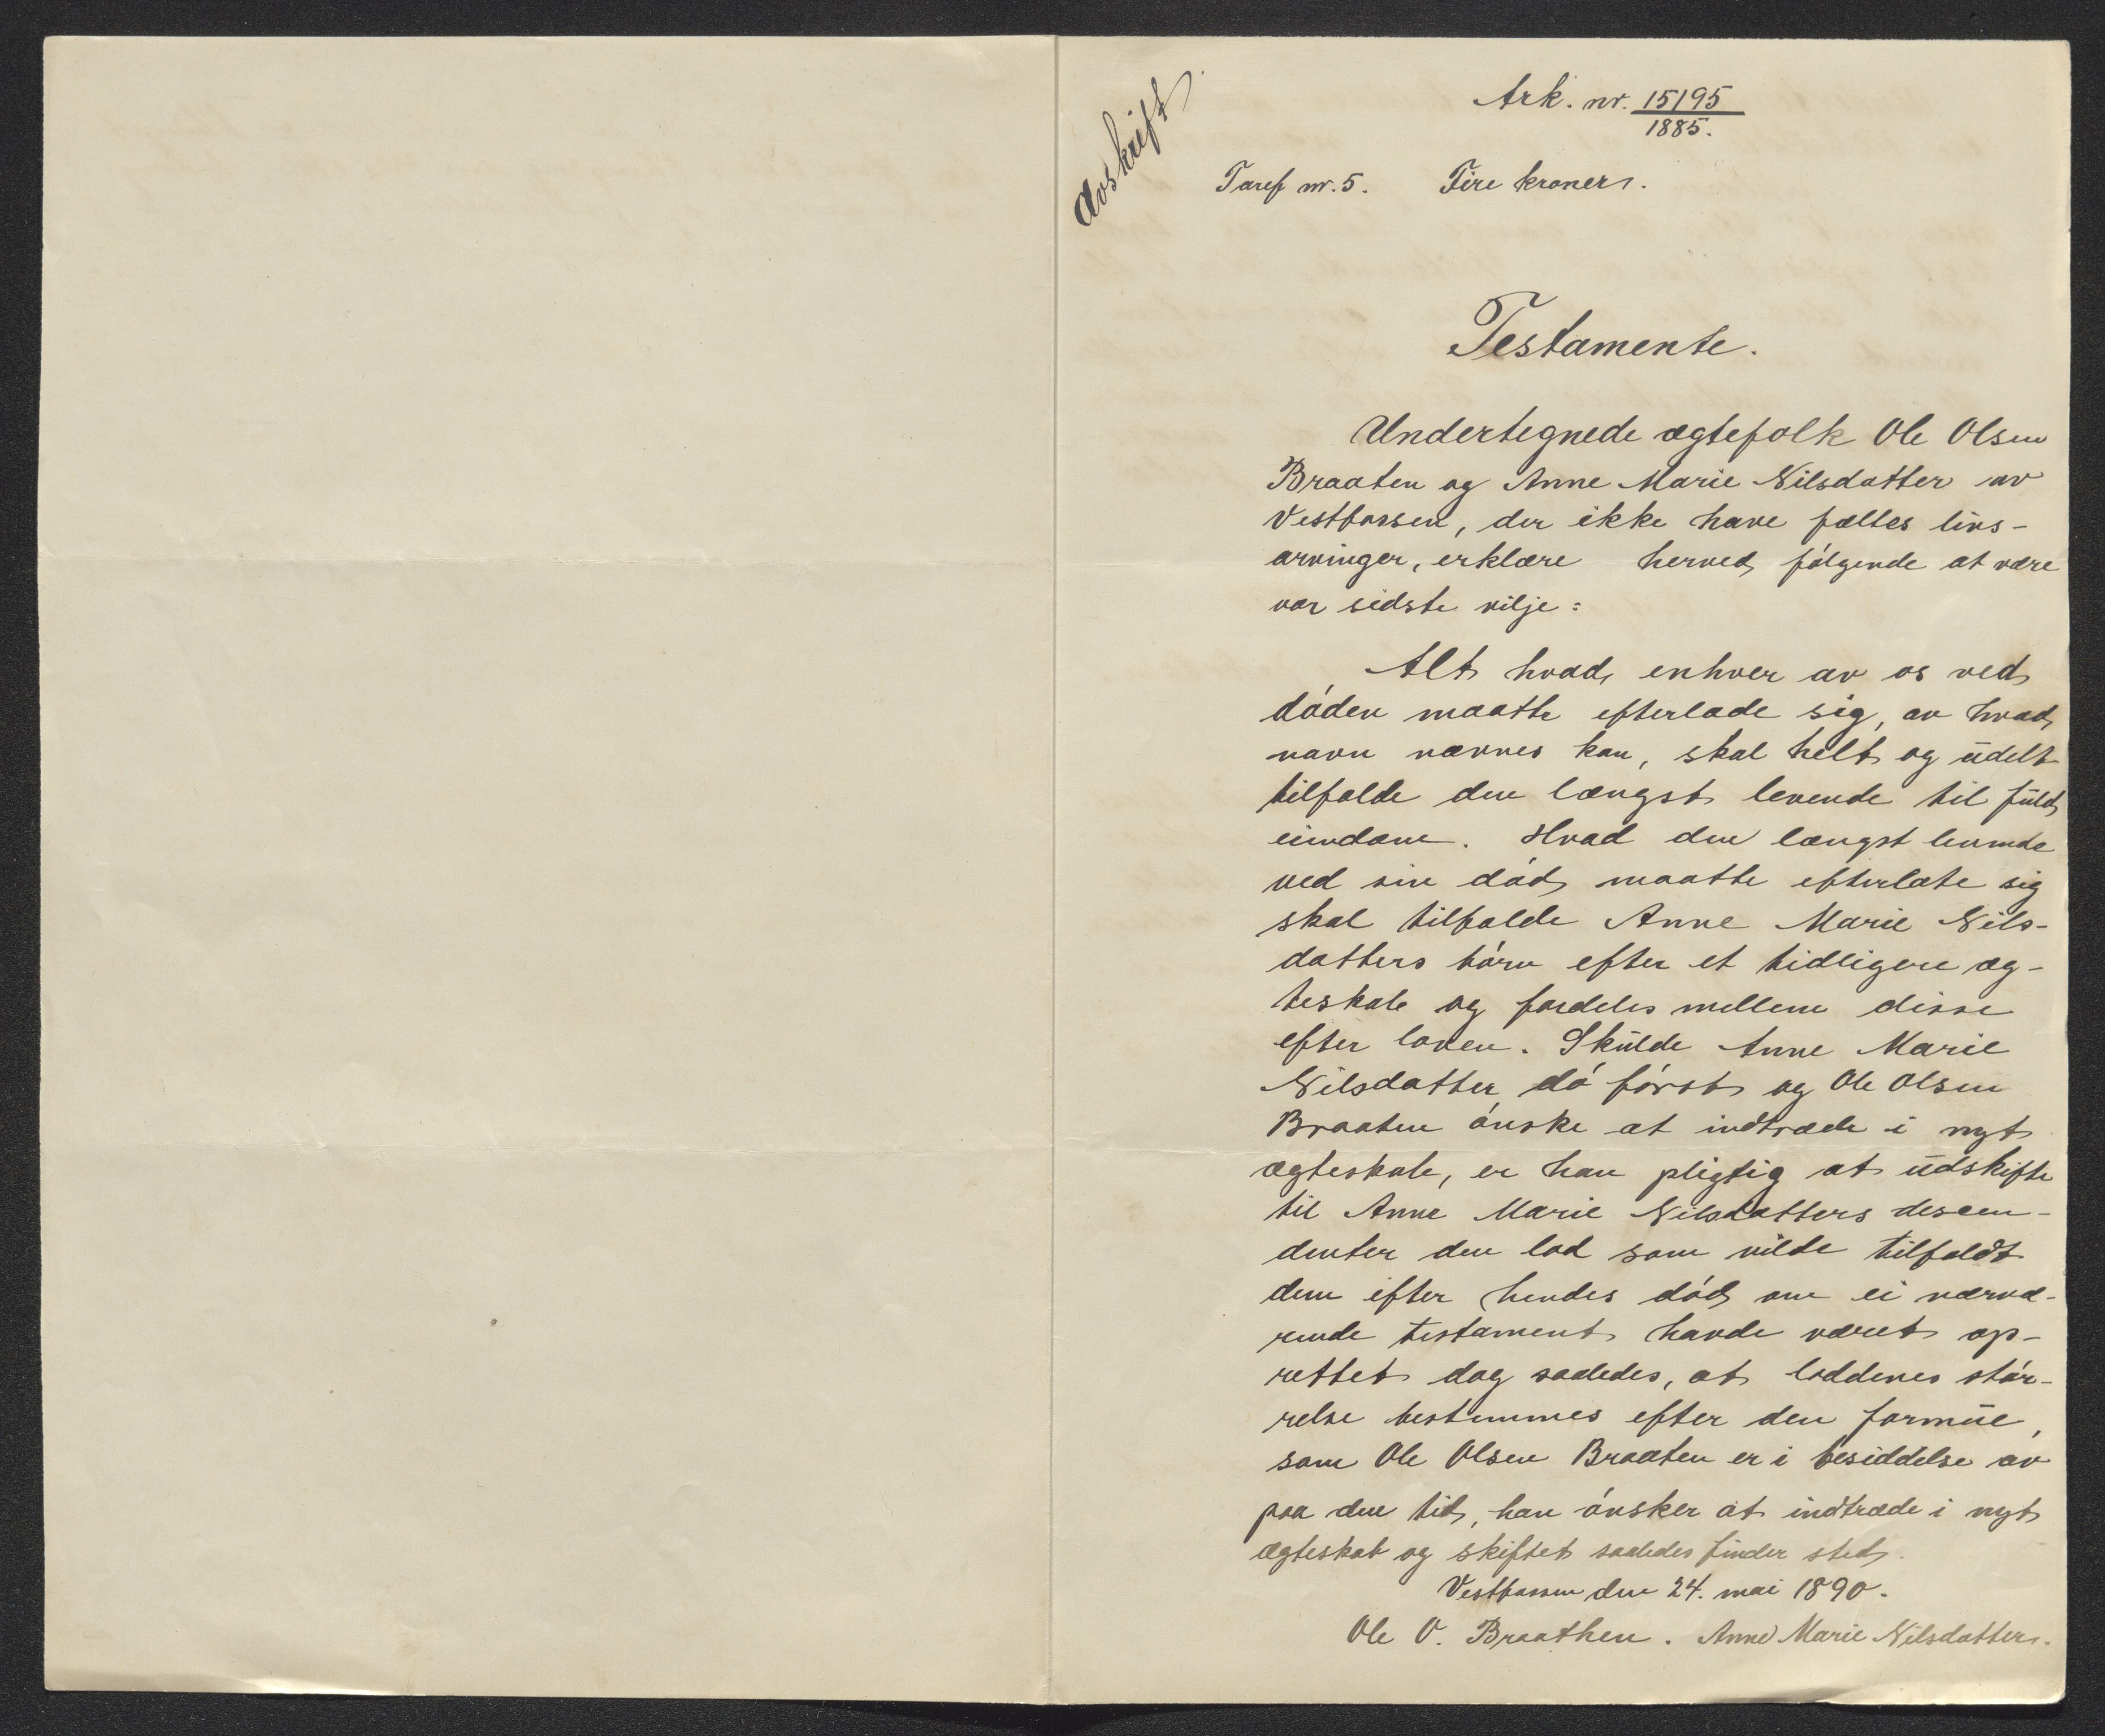 Avskrift
Ark. nr. 15195
1885.
Taref nr. 5. Fire kroner.
Testamente.
Undertegnede ægtefolk Ole Olsen
Braaten og Anne Marie Nilsdatter av
Vestfossen, der ikke have fælles livs-
arvinger, erklære herved følgende at være
vor sidste vilje:
Alt hvad enhver av os ved
døden maatte efterlade sig, av hvad
navn nævnes kan, skal helt og udelt
tilfalde den længst levende til fuld
eiendom. Hvad den længst levende
ved sin død maatte efterlate sig
skal tilfalde Anne Marie Nils-
datters børn efter et tidligere æg-
teskab og fordeles mellem disse
efter loven. Skulde Anne Marie
Nilsdatter dø først og Ole Olsen
Braaten ønske at indtræde i nyt
ægteskab, er han pligtig at udskifte
til Anne Marie Nilsdatters descen-
denter den lod som vilde tilfaldt
dem efter hendes død om ei nærvæ-
rende testament havde været op-
rettet dog saaledes, at loddenes stør-
relse bestemmes efter den formue,
som Ole Olsen Braaten er i besiddelse av
paa den tid, han ønsker at indtræde i nyt
ægteskab og skiftet saaledes finder sted.
Vestfossen den 24. mai 1890.
Ole O. Braathen. Anne Marie Nilsdatter.